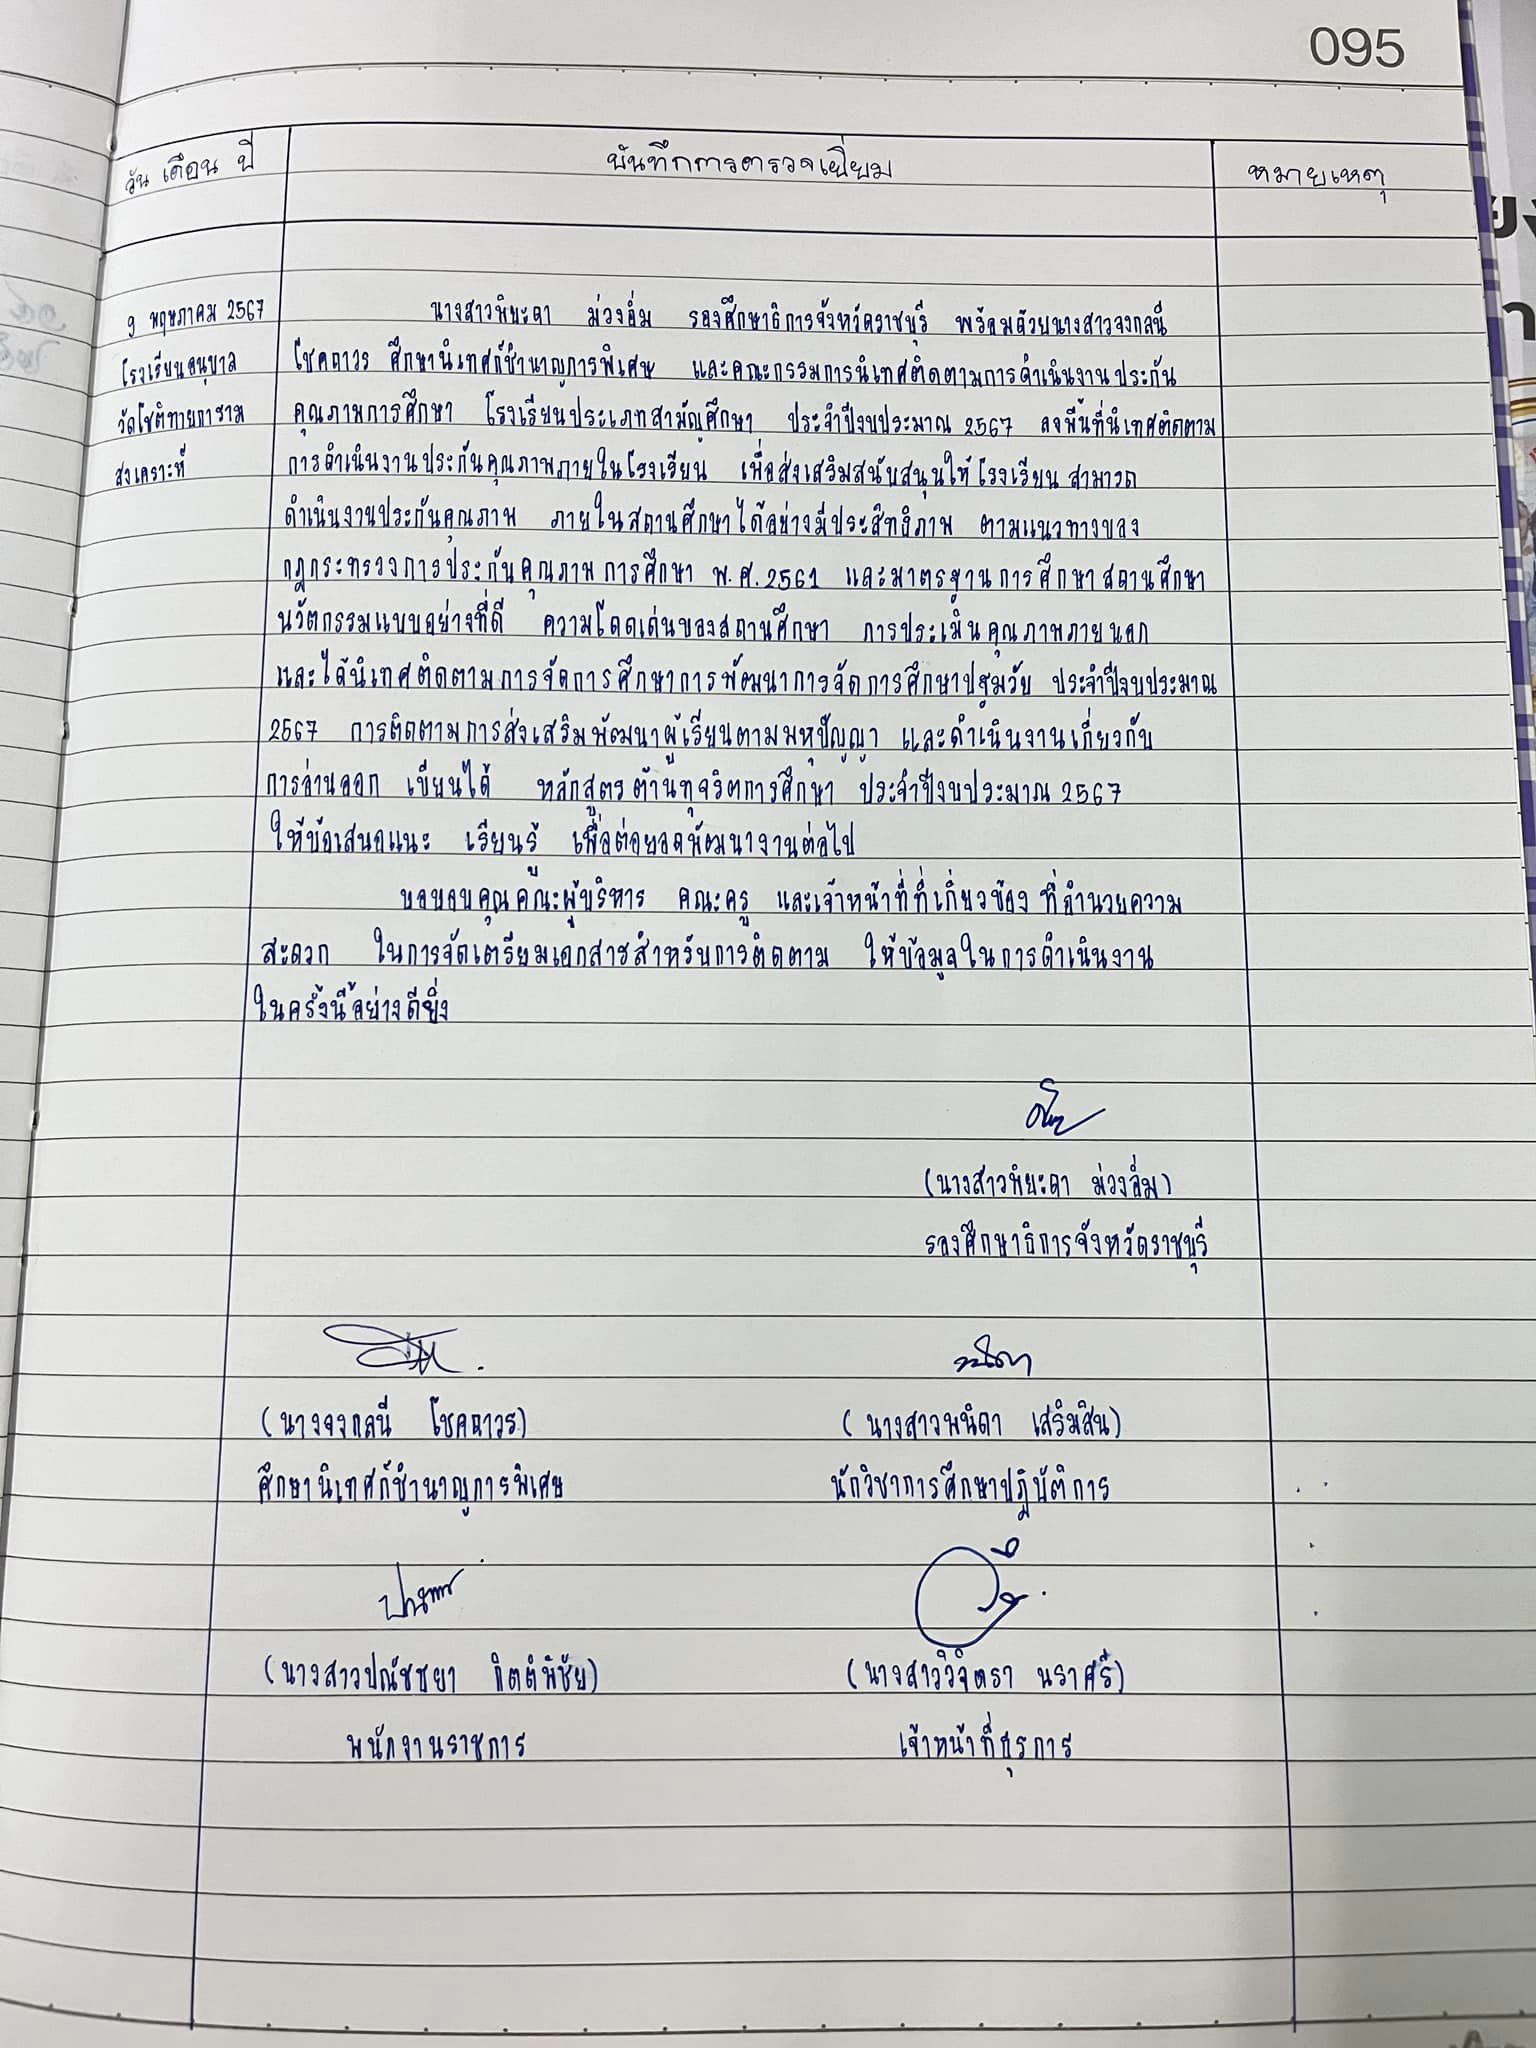 095
วัน เดือน ปี บันทึกการตรวจเยี่ยม หมายเหตุ
9 พฤษภาคม 2567 นางสาวพิยะดา ม่วงอิ่ม รองศึกษาธิการจังหวัดราชบุรี พร้อมด้วยนางสาวจงกลนี
โรงเรียนอนุบาล โชคถาวร ศึกษานิเทศก์ชำนาญการพิเศษ และคณะกรรมการนิเทศติดตามการดำเนินงานประกัน
วัดโชติทายการาม คุณภาพการศึกษา โรงเรียนประเภทสามัญศึกษา ประจำปีงบประมาณ 2567 ลงพื้นที่นิเทศติดตาม
สงเคราะห์ การดำเนินงานประกันคุณภาพภายในโรงเรียน เพื่อส่งเสริมสนับสนุนให้โรงเรียนสามารถ
ดำเนินงานประกันคุณภาพ ภายในสถานศึกษาได้อย่างมีประสิทธิภาพ ตามแนวทางของ
กฎกระทรวงการประกันคุณภาพการศึกษา พ.ศ.2561 และมาตรฐานการศึกษาสถานศึกษา
นวัตกรรมแบบอย่างที่ดี ความโดดเด่นของสถานศึกษา การประเมินคุณภาพภายนอก
และได้นิเทศติดตามการจัดการศึกษาการพัฒนาการจัดการศึกษาปฐมวัย ประจำปีงบประมาณ
2567 การติดตามการส่งเสริมพัฒนาผู้เรียนตามพหุปัญญา และดำเนินงานเกี่ยวกับ
การอ่านออก เขียนได้ หลักสูตรต้านทุจริตการศึกษา ประจำปีงบประมาณ 2567
ให้ข้อเสนอแนะ เรียนรู้ เพื่อต่อยอดพัฒนางานต่อไป
ขอขอบคุณคณะผู้บริหาร คณะครู และเจ้าหน้าที่ที่เกี่ยวข้อง ที่อำนวยความ
สะดวก ในการจัดเตรียมเอกสารสำหรับการติดตาม ให้ข้อมูลในการดำเนินงาน
ในครั้งนี้อย่างดียิ่ง
(นางสาวพิยะดา ม่วงอิ่ม)
รองศึกษาธิการจังหวัดราชบุรี
(นางจงกลนี โชคถาวร) (นางสาวพนิดา เสริมสิน)
ศึกษานิเทศก์ชำนาญการพิเศษ นักวิชาการศึกษาปฏิบัติการ
(นางสาวปณัชชยา กิตติพิชัย) (นางสาววิจิตรา นราศรี)
พนักงานราชการ เจ้าหน้าที่ธุรการ